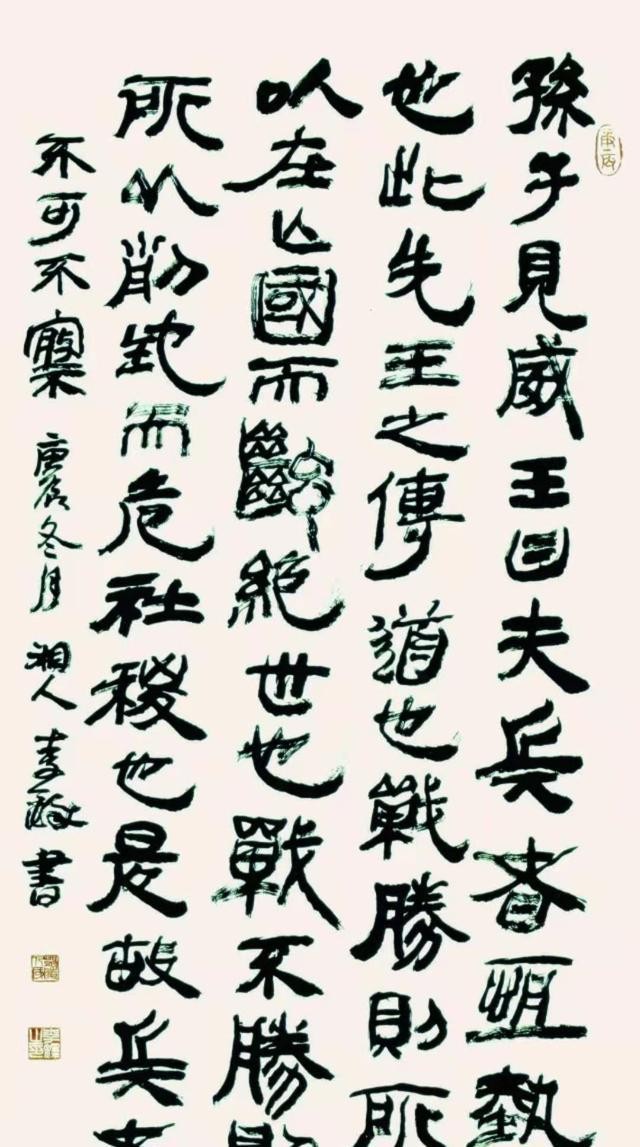 孫子見威王曰夫兵者恆埶
也此先王之傳道也戰勝則所
以在亡國而繼絕世也戰不勝則
所以削地而危社稷也是故兵者
不可不察 庚辰冬月 湘人李書
庚辰